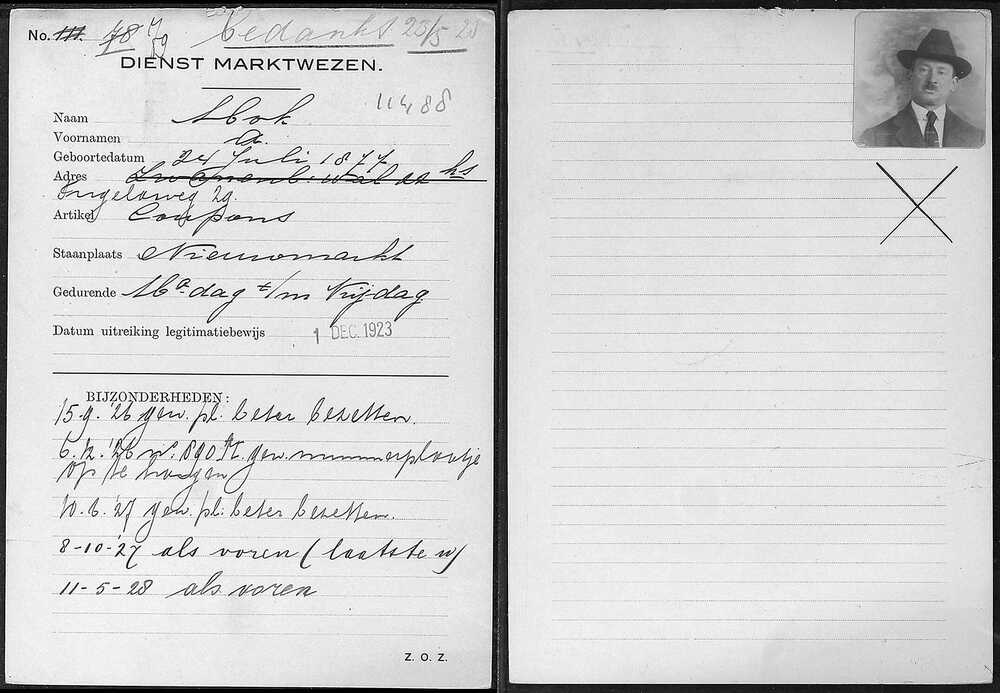 No. 111. 78 Bedankt 23/5 28
79
DIENST MARKTWEZEN.
11488
Naam Mok
Voornamen A.
Geboortedatum 24 Juli 1877
Adres hs
Engelsweg 29.
Artikel Coupons
Staanplaats Nieuwmarkt
Gedurende Ma-dag t/m Vrijdag
Datum uitreiking legitimatiebewijs 1 DEC. 1923
BIJZONDERHEDEN:
15.9.'26 gew. pl. beter bezetten.
6.12.'26 n. 890 gew. nummerplaatje
op te hangen
10.6.'27 gew. pl. beter bezetten.
8-10-'27 als voren (laatste w)
11-5-28 als voren
Z. O. Z.